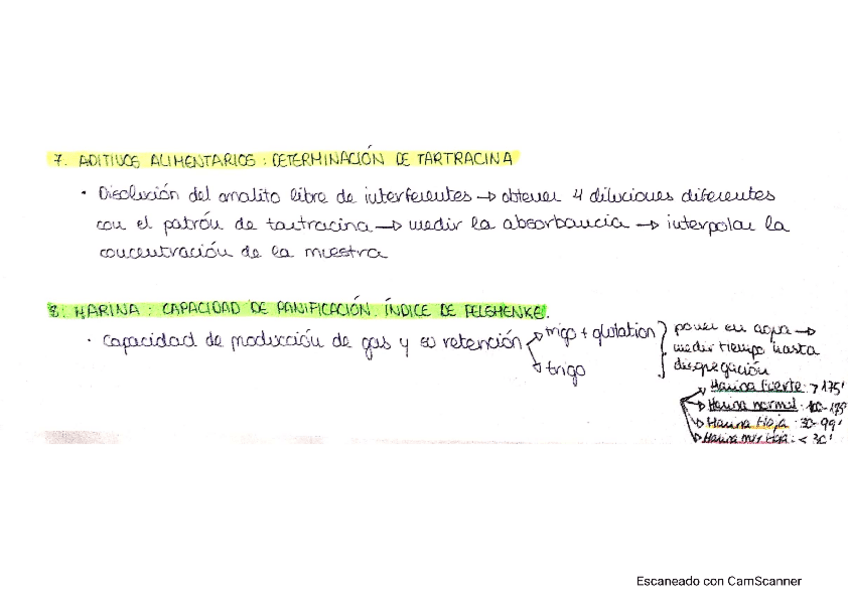 7. ADITIVOS ALIMENTARIOS : DETERMINACIÓN DE TARTRACINA
· Disolución del analito libre de interferentes → obtener 4 diluciones diferentes
con el patrón de tartracina → medir la absorbancia → interpolar la
concentración de la muestra
8. HARINA : CAPACIDAD DE PANIFICACIÓN. ÍNDICE DE PELSHENKE.
· Capacidad de producción de gas y su retención
trigo + glutation
trigo
poner en agua →
medir tiempo hasta
disgregación
Harina fuerte: > 175'
Harina normal: 100-175'
Harina floja: 30-99'
Harina muy floja: < 30'
Escaneado con CamScanner